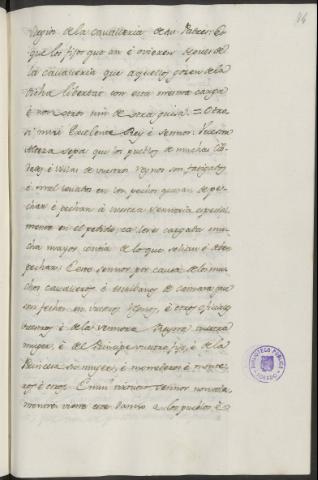 84
vilegios de la cavalleria de su Padre: E
que los fijos que an é ovieren depues de
la cavalleria que aquellos gozen de la
dicha libertat con esta mesma carga
é non otros nin de otra guisa. = Otro
si mui Excelente Rey é Sennor: Vuestra
Alteza sepa que los pueblos de muchas Cib-
dades é Villas de vuestros Regnos son fatigados
é mal levados en los pechos que an de pe-
char é pechan á vuestra Sennoria especial-
mente en el pedido, ca les es cargada mu-
cha mayor contia de lo que solian é deben
pechar: E esto Sennor por causa de los mu-
chos cavalleros é escribanos de camara que
son fechos en vuestros Regnos, é otros oficiales
vuestros é de la Sennora Reyna vuestra
muger, é del Principe vuestro fijo, é de la
Princesa su muger, é monederos é monte-
ros é otros. E mui virtuoso Sennor non sola-
mente viene este danno a los pueblos, é
BIBLIOTECA PUBLICA
TOLEDO